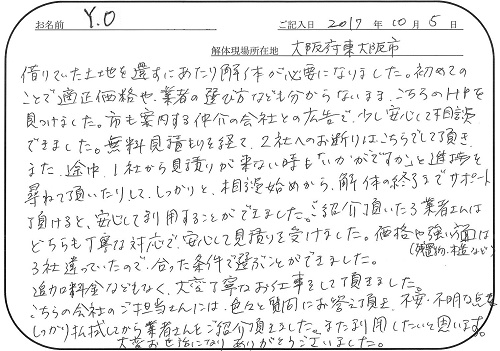 お名前 Y.O ご記入日 2017年10月5日
解体現場所在地 大阪府東大阪市
借りていた土地を還すにあたり解体が必要になりました。初めての
ことで適正価格や、業者の選び方なども分からないまま、こちらのHPを
見つけました。市も案内する仲介の会社との広告で、少し安心して相談
できました。無料見積もりを経て、2社へのお断りはこちらでして頂き、
また、途中、1社から見積りが来ない時も「いかがですか」と進捗を
尋ねて頂いたりして、しっかりと、相談始めから、解体の終了までサポート
頂けると、安心して利用することができました。ご紹介頂いた3業者さんは
どちらも丁寧な対応で、安心して見積りを受けました。価格や強い面は
(残置物・木造など)
3社違っていたので、合った条件で選ぶことができました。
追加料金などもなく、大変丁寧なお仕事をして頂きました。
こちらの会社のご担当さんには、色々と質問にお答え頂き、不安・不明な点を
しっかり払拭してから業者さんをご紹介頂きました。また利用したいと思います。
大変お世話になりありがとうございました。